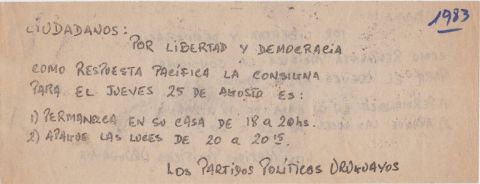 1983
CIUDADANOS:
POR LIBERTAD Y DEMOCRACIA
COMO RESPUESTA PACÍFICA LA CONSIGNA
PARA EL JUEVES 25 DE AGOSTO ES:
1) PERMANEZCA EN SU CASA DE 18 A 20HS.
2) APAGUE LAS LUCES DE 20 A 20¹⁵.
LOS PARTIDOS POLÍTICOS URUGUAYOS